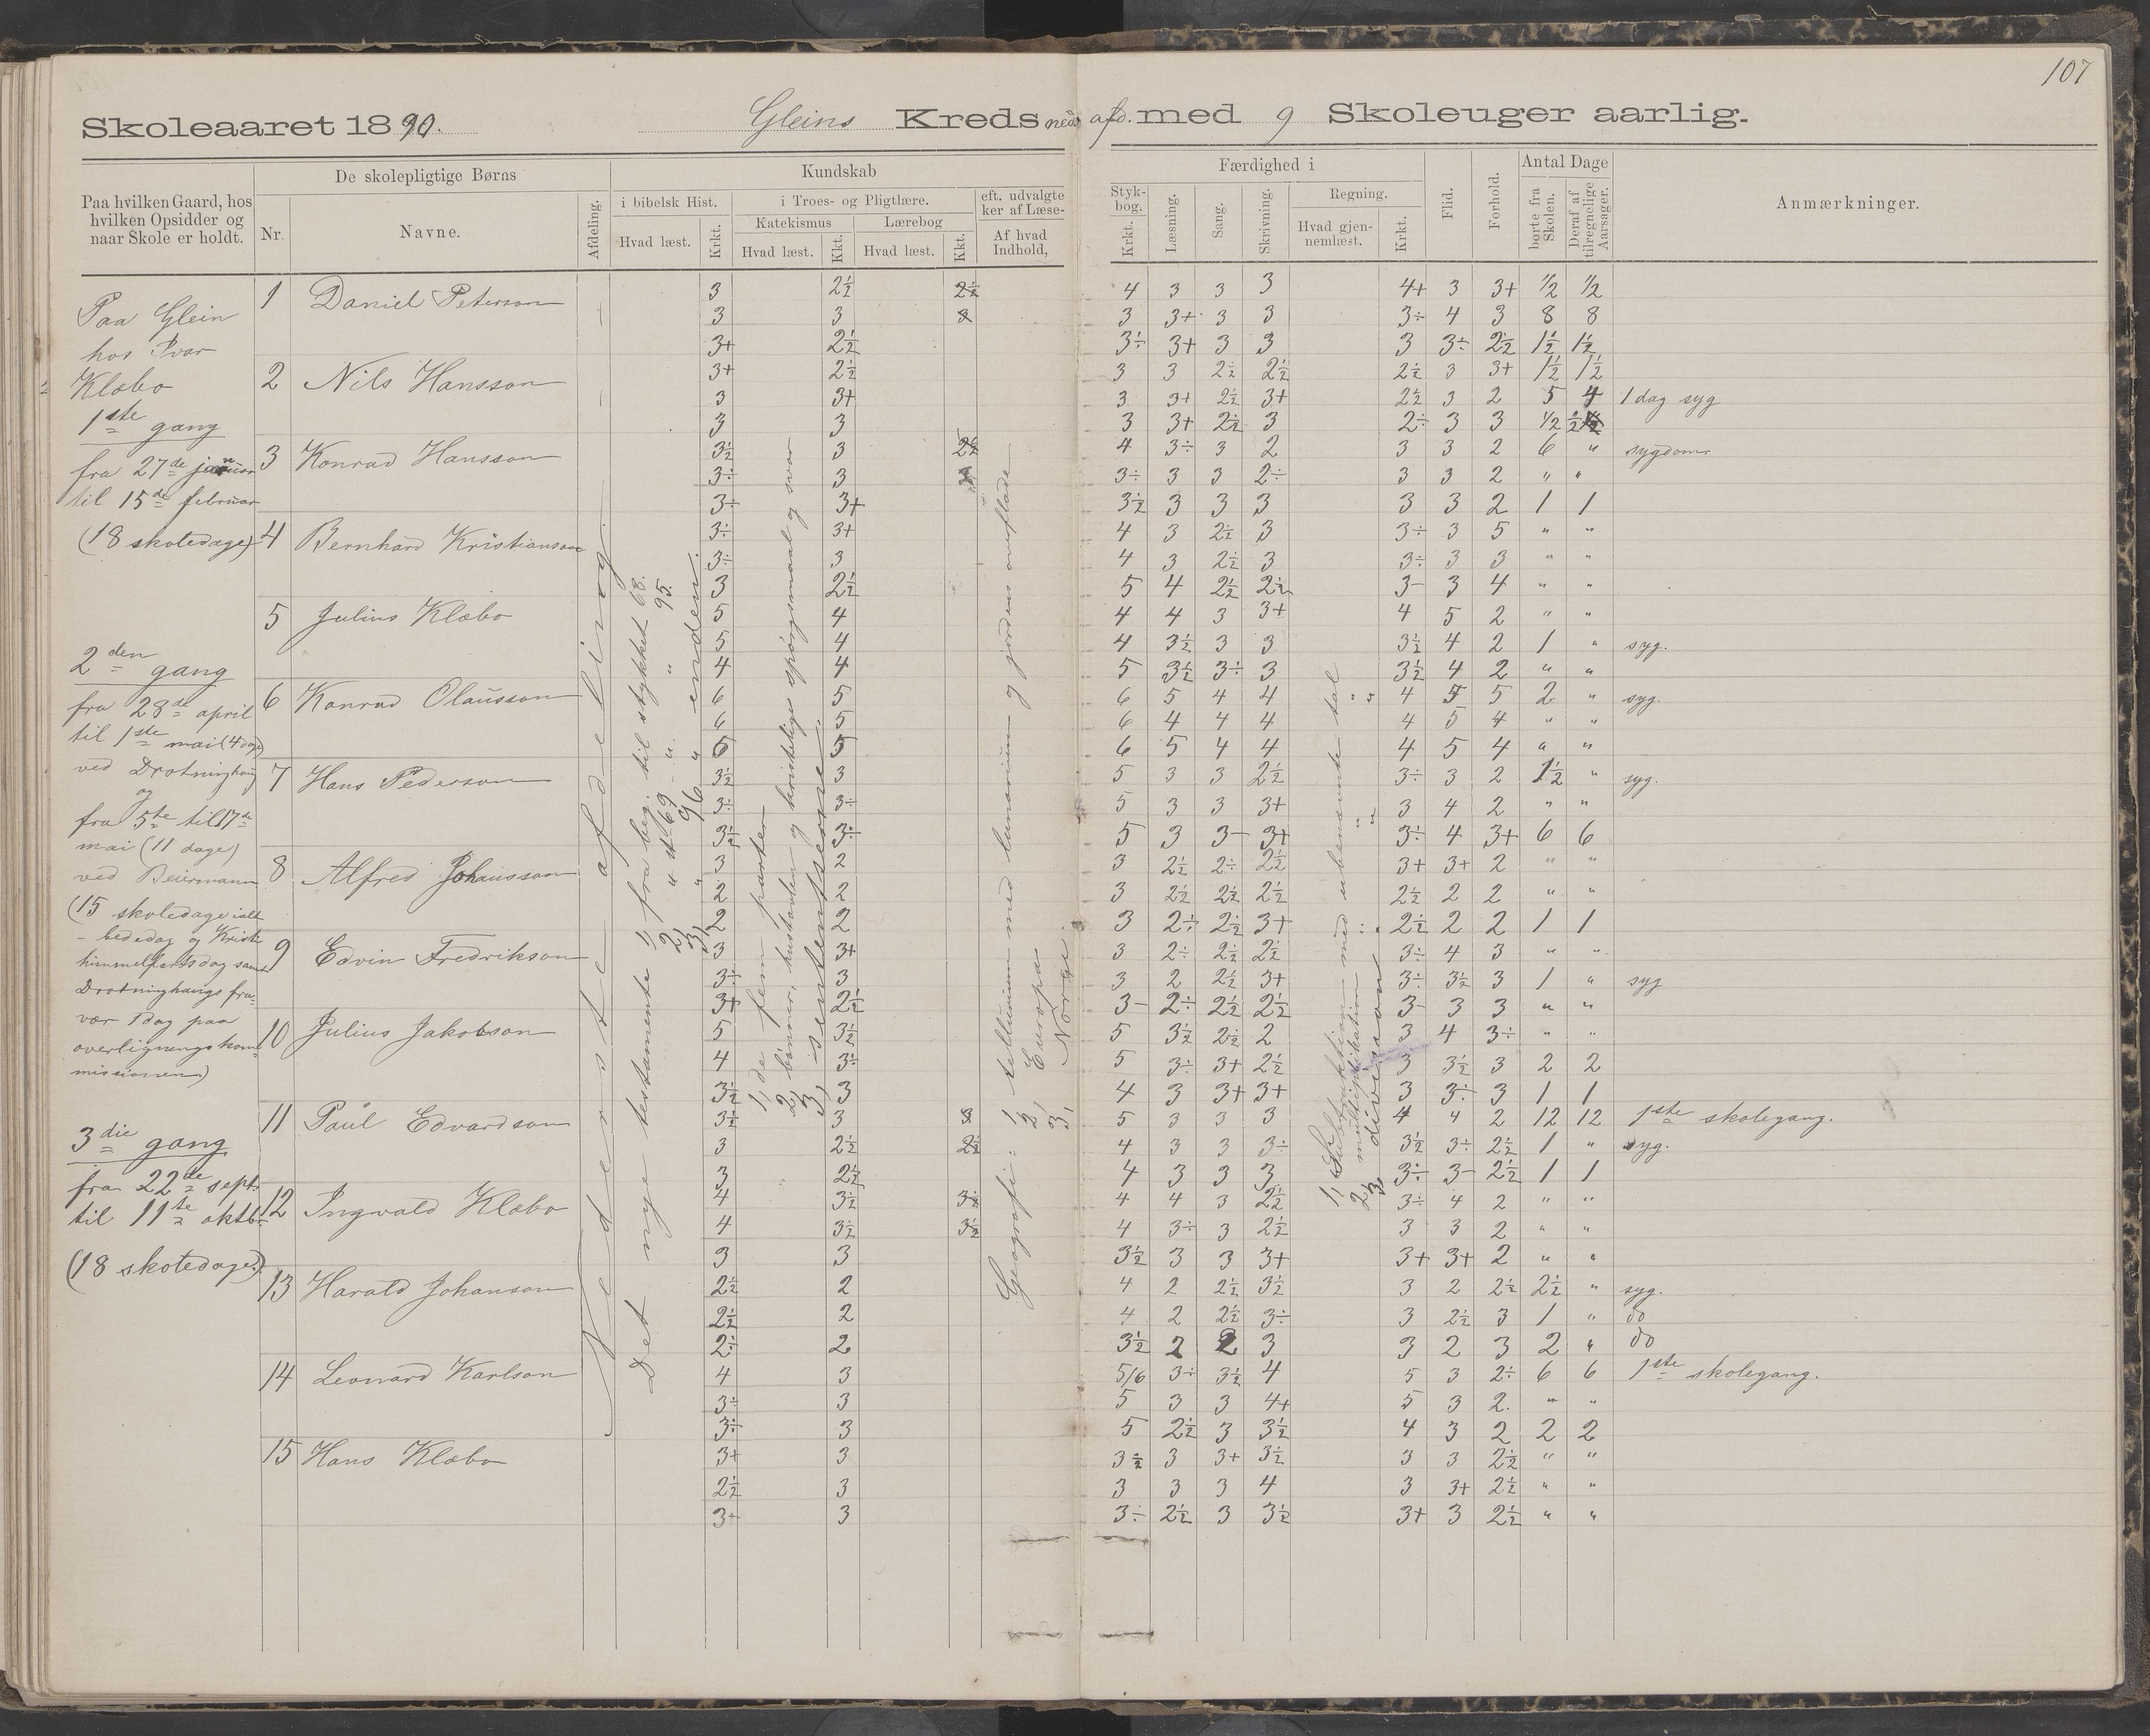 107
Skoleaaret 1890. Gleins Kreds ned. afd. med 9 Skoleuger aarlig.
Paa hvilken Gaard, hos
hvilken Opsidder og
naar Skole er holdt.
De skolepligtige Børns
Nr.
Navne.
Afdeling.
Kundskab
i bibelsk Hist.
Hvad læst.
Krkt.
i Troes- og Pligtlære.
Katekismus
Hvad læst.
Kkt.
Lærebog
Hvad læst.
Kkt.
eft. udvalgte
ker af Læse-
Af hvad
Indhold,
Færdighed i
Styk-
bog.
Krkt.
Læsning.
Sang.
Skrivning.
Regning.
Hvad gjen-
nemlæst.
Krkt.
Flid.
Forhold.
Antal Dage
borte fra
Skolen.
Deraf af
tilregnelige
Aarsager.
Anmærkninger.
Paa Glein
hos Ivar
Klæbo
1ste gang
fra 27de januar
til 15de februar
(18 skoledage)
2den gang
fra 28de april
til 1ste mai (4 dage)
ved Drotninghaug
og
fra 5te til 17de
mai (11 dage)
ved Beiermann
(15 skoledage ialt
- bededag og Kristi
himmelfartsdag samt
Drotninghaugs fra-
vær 1 dag paa
overligningskom-
missionen)
3die gang
fra 22de sept.
til 11te oktbr.
(18 skoledage.)
Nederste afdeling.
Det nye testamente 1, fra beg. til stykket 68.
2, " st 69 - " - " 95.
3, " " 96 " enden.
1, de fem parter
2, bønner, hustavlen og kristelige spørgsmaal og svar
3, sentensene.
Geografi: 1, tellurium med lunarium og jordens overflade
2, Europa
3, Norge.
1, Subtraktion med ubenævnte tal
2, multiplikation " "
3, division " "
1 Daniel Peterson 3 2½ 2½ 4 3 3 3 4+ 3 3+ ½ ½
3 3 3 3 3+ 3 3 3÷ 4 3 8 8
3+ 2½ 3÷ 3+ 3 3 3 3÷ 2½ 1½ 1½
2 Nils Hansson 3+ 2½ 3 3 2½ 2½ 2½ 3 3+ 1½ 1½
3 3+ 3 3+ 2½ 3+ 2½ 3 2 5 4 1 dag syg
3 3 3 3+ 2½ 3 2÷ 3 3 ½ ½
3 Konrad Hansson 3½ 3 2½ 4 3÷ 3 2 3 3 2 6 " sygdom
3÷ 3 3÷ 3 3 2÷ 3 3 2 " "
3÷ 3+ 3½ 3 3 3 3 3 2 1 1
4 Bernhard Kristianson 3÷ 3+ 4 3 2½ 3 3÷ 3 5 " "
3÷ 3 4 3 2½ 3 3÷ 3 3 " "
3 2½ 5 4 2½ 2½ 3- 3 4 " "
5 Julius Klæbo 5 4 4 4 3 3+ 4 5 2 " "
5 4 4 3½ 3 3 3½ 4 2 1 " syg.
4 4 5 3½ 3÷ 3 3½ 4 2 " "
6 Konrad Olausson 6 5 6 5 4 4 4 5 5 2 " syg.
6 5 6 4 4 4 4 5 4 " "
6 5 6 5 4 4 4 5 4 " "
7 Hans Pederson 3½ 3 5 3 3 2½ 3÷ 3 2 1½ " syg.
3÷ 3÷ 5 3 3 3+ 3 4 2 " "
3½ 3÷ 5 3 3- 3+ 3÷ 4 3+ 6 6
8 Alfred Johansson 3 2 3 2½ 2÷ 2½ 3+ 3+ 2 " "
2 2 3 2½ 2½ 2½ 2½ 2 2 " "
2 2 3 2÷ 2½ 3+ 2½ 2 2 1 1
9 Edvin Fredrikson 3 3+ 3 2÷ 2½ 2½ 3÷ 4 3 " "
3÷ 3 3 2 2½ 3+ 3÷ 3½ 3 1 " syg
3+ 2½ 3- 2÷ 2½ 2½ 3- 3 3 " "
10 Julius Jakobson 5 3½ 5 3½ 2½ 2 3 4 3÷ " "
4 3÷ 5 3÷ 3+ 2½ 3 3½ 3 2 2
3½ 3 4 3 3+ 3+ 3 3÷ 3 1 1
11 Paul Edvardson 3½ 3 3 5 3 3 3 4 4 2 12 12 1ste skolegang.
3 2½ 2½ 4 3 3 3÷ 3½ 3÷ 2½ 1 " syg.
3 2½ 4 3 3 3 3÷ 3- 2½ 1 1
12 Ingvald Klæbo 4 3½ 3½ 4 4 3 2½ 3÷ 4 2 " "
4 3½ 3½ 4 3÷ 3 2½ 3 3 2 " "
3 3 3½ 3 3 3+ 3+ 3+ 2 " "
13 Harald Johanson 2½ 2 4 2 2½ 3½ 3 2 2½ 2½ " syg.
2½ 2 4 2 2½ 3÷ 3 2½ 3 1 " do
2÷ 2 3½ 2 2 3 3 2 3 2 " do
14 Leonard Karlson 4 3 5/6 3÷ 3½ 4 5 3 2÷ 6 6 1ste skolegang.
3÷ 3 5 3 3 4+ 5 3 2. " "
3÷ 3 5 2½ 3 3½ 4 3 2 2 2
15 Hans Klæbo 3+ 3 3½ 3 3+ 3½ 3 3 2½ " "
2½ 3 3 3 3 4 3 3+ 2½ " "
3+ 3 3÷ 2½ 3 3½ 3+ 3 2½ " "